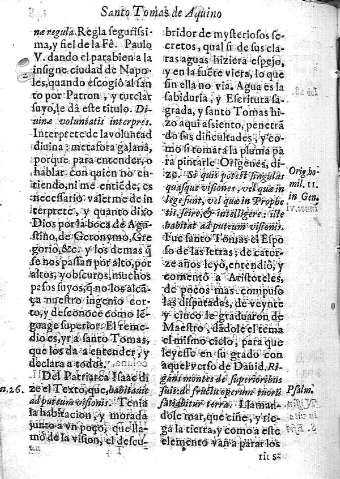 Santo Tomas de Aquino
næ regula. Regla segurissi-
ma, y fiel de la Fê. Paulo
V. dando el parabien a la
insigne ciudad de Napo-
les, quando escogiò al san-
to por Patron, y tutelar
suyo, le dà este titulo. Di-
uinæ voluntatis interpres.
Interprete de la voluntad
diuina: metafora galana,
porque para entender, o
hablar con quien no en-
tiendo, ni me entiẽde, es
necessario valerme de in
terprete, y quanto dixo
Dios por la boca de Agu-
stino, de Geronymo, Gre
gorio, &c. y los demas q̃
se nos passan por alto, por
altos, y obscuros, muchos
passos suyos, q̃ no los alcã
ça nuestro ingenio cor-
to, y desconoce como lẽ-
guage superior. El reme-
dio es, yr a santo Tomas,
que los da a entender, y
declara a todos.
Del Patriarca Isaac di
ze el Texto, que, habitauit
ad puteum visionis. Tenia
la habitacion, y morada
junto a vn poço, que lla-
mò de la vision, el descu-
n. 26.
bridor de mysteriosos se-
cretos, qual si de sus cla-
ras aguas hiziera espejo,
y en la fuẽte viera, lo que
sin ella no via. Agua es la
sabiduria, y Escritura sa-
grada, y santo Tomas hi-
zo aqui assiento, penetrà
do sus dificultades, y co-
mo si tomara la pluma pa
ra pintarle Origenes, di-
ze. Se quis potest singulas
quasque visiones, vel quæ in
lege sunt, vel quæ in Prophe
tis, scire, & intelligere: iste
habitat ad puteum visionis.
Fue santo Tomas el Espo
so de las letras, de cator-
ze años leyò, entendiò, y
comentò a Aristoteles,
de pocos mas compuso
las disputadas, de veynte
y cinco le graduaron de
Maestro, dãdole el tema
el mismo cielo, para que
leyesse en su grado con
aquel verso de Dauid. Ri-
gans montes de superioribus
suis: de fructu operum tuorũ
satiabitur terra. Llaman-
dole mar, que ciñe, y rie-
ga la tierra, y como a este
elemento van a parar los
Orig. ho-
mil. 11.
in Gen.
Psalm.